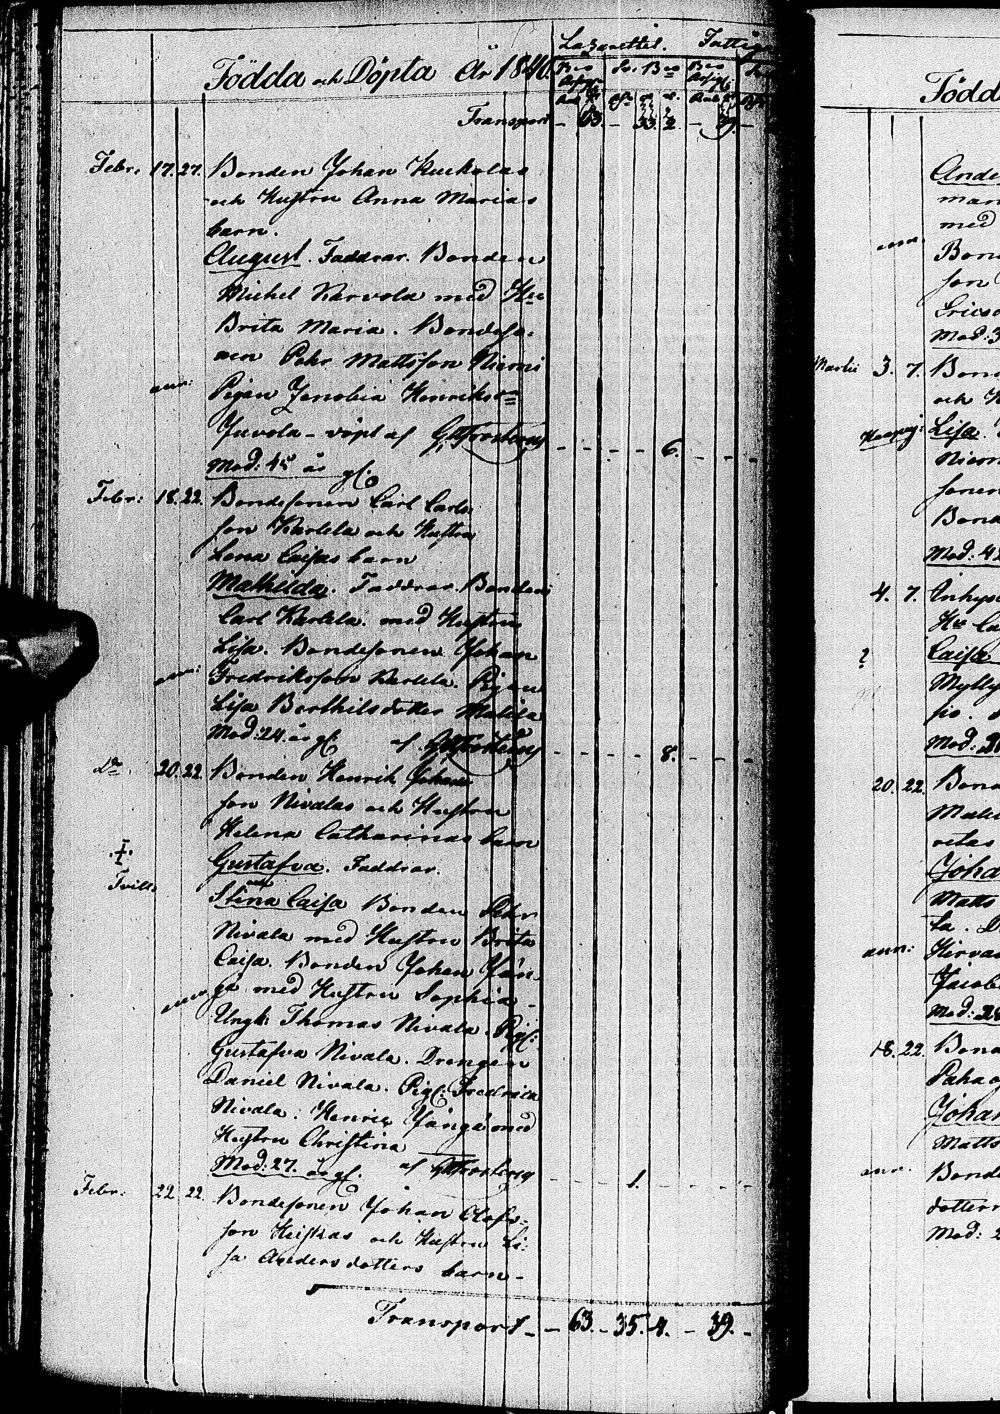 Lazarettet. Fattig
Födda och Döpta År 1840.
Transport - 63. - 33. 2 - 39. -
Febr. 17. 27. Bonden Johan Kuckolas
och Hustru Anna Marias
barn.
August. Faddrar. Bonden
Michel Karvola med H:u
Brita Maria. Bondeso-
nen Pehr Mattsson Niemi
ann: Pigan Zenobia Henriks
Juvola - döpt af
Mod: 45 år gl. - - - - 6. - - -
Febr: 18. 22. Bondesonen Carl Carls
son Karlela och Hustru
Lena Caisas barn
Mathilda. Faddrar. Bonden
Carl Karlela. med Hustru
Lisa. Bondesonen Johan
Fredriksson Karlela. Pigan
Lisa Berthilsdotter
Mod: 24. år gl. af - - - - 8. - - -
D:o 20. 22. Bonden Henrik Johans
son Nivalas och Hustru
Helena Catharinas barn
Gustafva. Faddrar.
Tvill:
och
Stina Caisa Bonden Pehr
Nivala med Hustru Brita
Caisa. Bonden Johan Yän
gä med Hustru Sophia
Ungk: Thomas Nivala. Pig:
Gustafva Nivala. Drengen
Daniel Nivala. Pig: Fredrica
Nivala. Henric Yängä med
Hustru Christina
Mod: 27. år gl. af - - - 1. - - - -
Febr: 22. 22. Bondesonen Johan Olofs-
son och Hustru Li-
sa Andersdotters barn -
Transport - - 63. - 35. 4. - 39. -
Född
Ande
man
med
ann: Bon
son
Ericso
Mod: 3
Martii 3. 7. Bon
och H
Lisa.
Niem
sonen
Bond
Mod: 42
4. 7. Inhys
H:u Ca
? Caisa
Mylly
Mod: 20
20. 22. Bon
Johan
Matts
ann: Hirva
Jacob
Mod: 28
18. 22. Bon
Paha
Johan
Matts
ann. Bond
dotter
Mod: 2